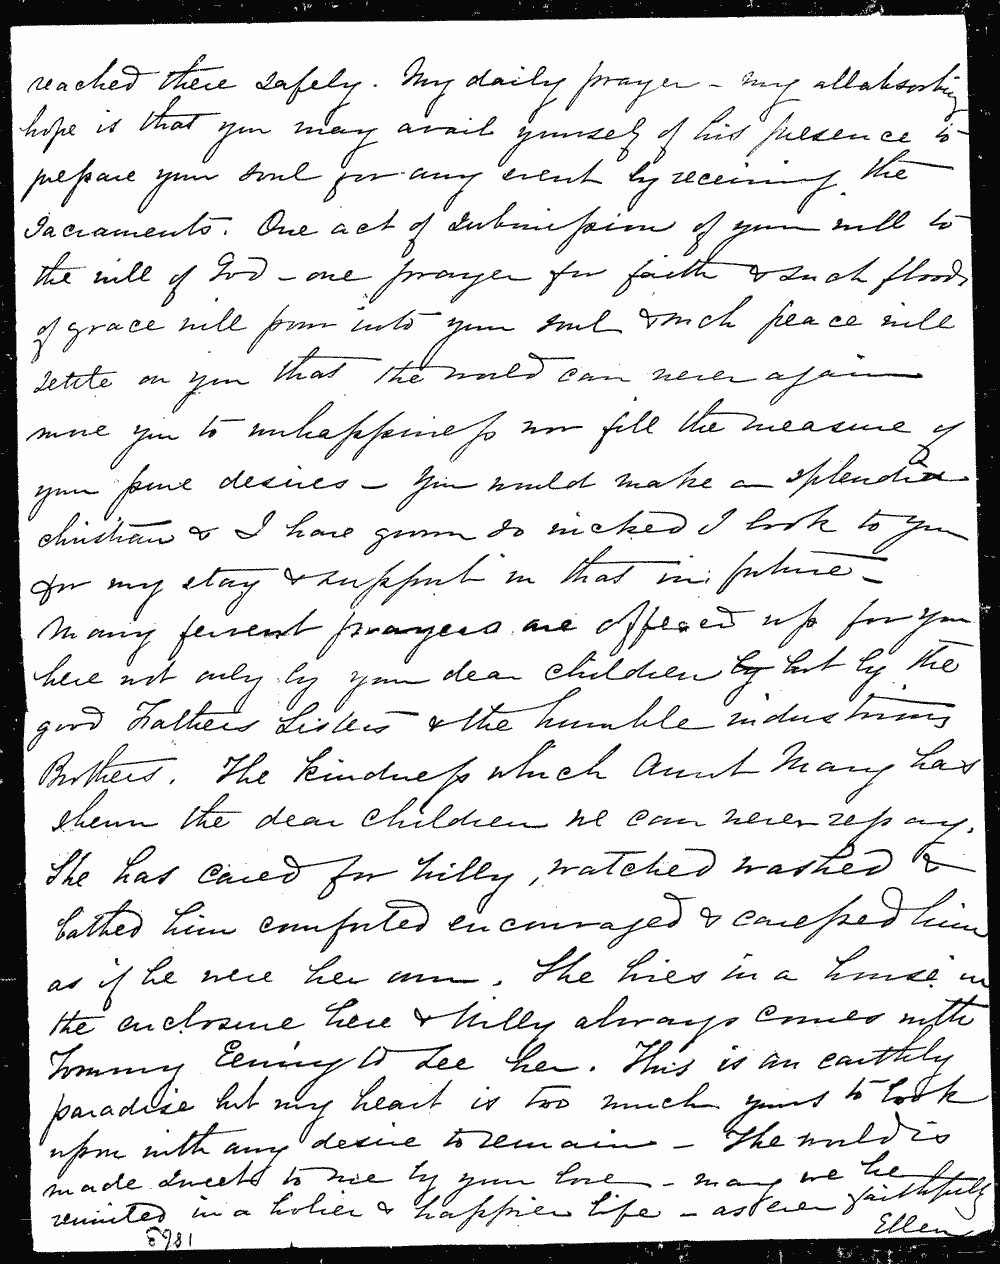 reached there safely. My daily prayer - my allabsorbing
hope is that you may avail yourself of his presence to
prepare your soul for any event by receiving the
Sacraments. One act of submission of your will to
the will of God - one prayer for faith & such floods
of grace will pour into your soul & such peace will
settle on you that the world can never again
move you to unhappiness nor fill the measure of
your pure desires - You would make a splendid
christian & I have grown so wicked I look to you
for my stay & support in that in future -
Many fervent prayers are offered up for you
here not only by your dear children by but by the
good Fathers Sisters & the humble industrious
Brothers. The kindness which Aunt Mary has
shewn the dear children we can never repay.
She has cared for Willy, watched washed &
bathed him comforted encouraged & caressed him
as if he were her own. She lives in a house in
the enclosure here & Willy always comes with
Tommy Ewing to see her. This is an earthly
paradise but my heart is too much yours to look
upon with any desire to remain - The world is
made sweet to me by your love - may we be
reunited in a holier & happier life - as ever faithfully
Ellen